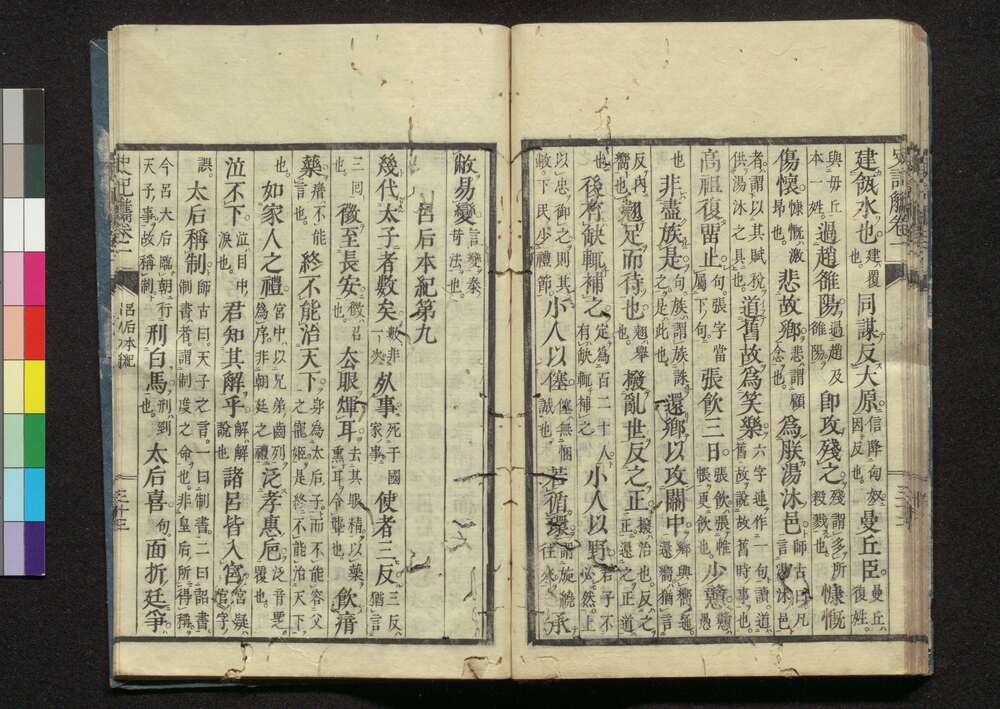 史記觿卷一
建瓴水也建覆也同謀反大原信降匈奴因反也曼丘臣曼丘復姓
與毋丘本一姓過趙雒陽過趙及雒陽卽攻殘之殘謂多所殺戮也慷慨
傷懷慷慨激昂也悲故鄉悲謂顧念也爲朕湯沐邑師古曰凡言湯沐邑
者謂以其賦稅供湯沐之具也道舊故爲笑樂六字連作一句讀道舊故說故舊時事也
高祖復畱止句張字當屬下句張飮三日張飮張帷帳更飮也少憃憃愚
也非盡族是句族謂族誅之是此也還鄉以攻關中鄉與嚮通還嚮猶言
反內嚮也翹足而待也翹舉也撥亂世反之正撥治也反之正還之正道
也後有缺輒補之定爲百二十人有缺輒補之小人以野君子不必然上
以忠御之則其敝下民少禮節小人以僿僿無悃誠也若循環謂旋繞往來承
敝易變言變秦苛法也
呂后本紀第九
幾代太子者數矣數非一次外事死于國家事使者三反三反猶言
三囘也徵至長安徵召也去眼煇耳去其眼精以藥熏耳令聾也飮瘖
藥瘖不能言終不能治天下身爲太后子而不能容父之寵姬是終不能治天下
也如家人之禮宮中以兄弟齒列爲序非朝廷之禮泛孝惠巵泛音覆也
泣不下泣目中淚也君知其解乎解解說也諸呂皆入宮宮疑官字
誤太后稱制師古曰天子之言一曰制書二曰詔書制書者謂制度之命也非皇后所得稱
今呂太后臨朝行天子事故稱制刑白馬刑剄也太后喜句面折廷爭
史記觿卷一 呂后本紀 三十三